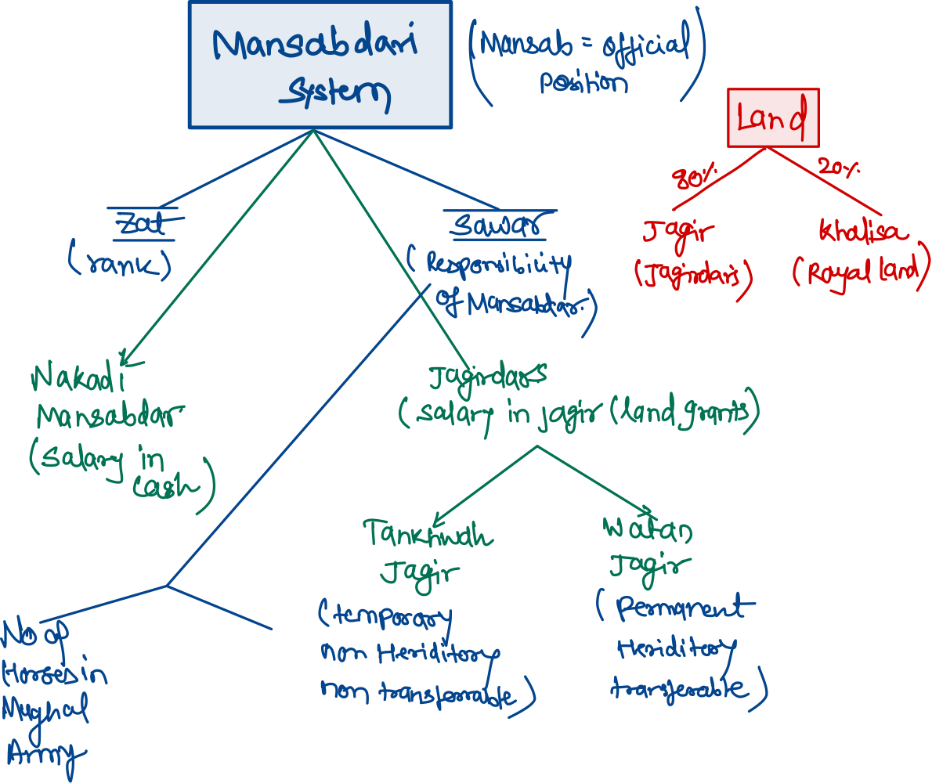 Mansabdari
System
(Mansab = official
position)
Land
80%
20%
Jagir
(Jagirdars)
Khalisa
(Royal land)
Zat
(rank)
Sawar
(Responsibility
of Mansabdar.)
Nakadi
Mansabdar
(salary in
cash)
Jagirdars
(salary in jagir (land grants)
Tankhwah
Jagir
(temporary
non Heriditory
non transferrable)
Watan
Jagir
(Permanent
Heriditory
transferable)
No of
Horses in
Mughal
Army